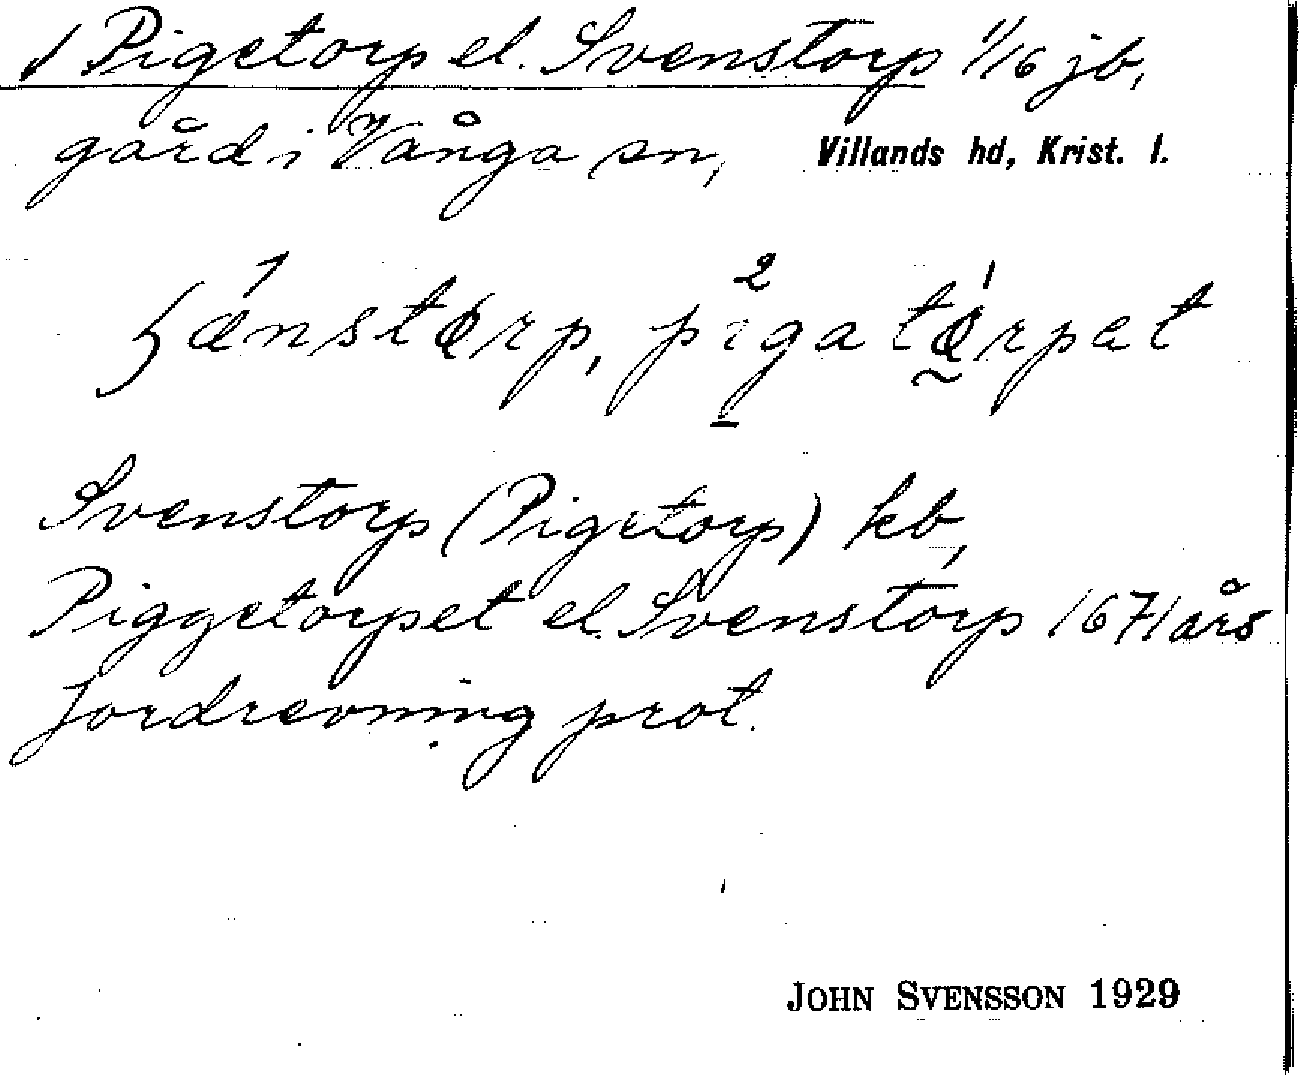 √ Pigetorp el. Svenstorp 1/16 jb,
gård i Vånga sn, Villands hd, Krist. l.
pigatǫrpet
Svenstorp (Pigetorp) kb,
Piggetorpet el. Svenstorp 1671 års
Jordrevning prot.
JOHN SVENSSON 1929